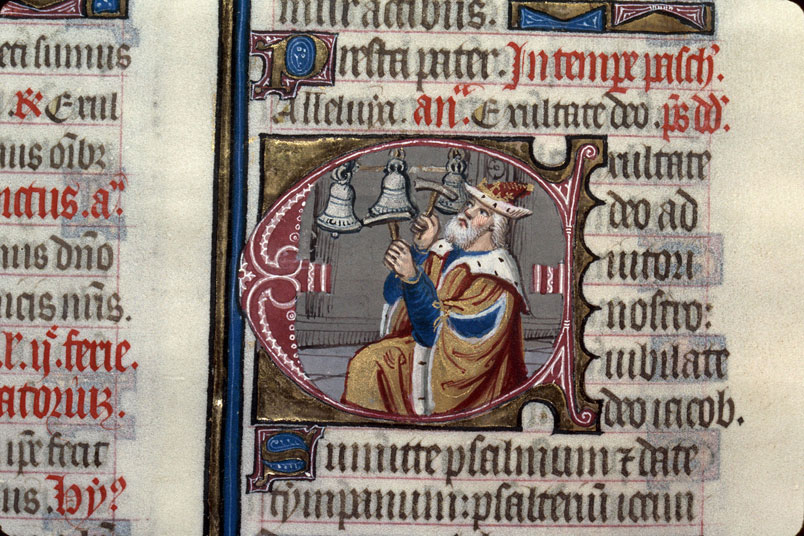 eti sumus
℟ Exul
nus oībꝫ
nctus. aͣ.
nus dn̄o
ncis nr̄is.
ij. ferie.
atoriūꝫ.
ip̄e fecit
nus. Hȳ?
mitte actibus.
Presta pater. In temp̲e pasch̾.
Alleluya. an̾. Exultate deo. p̄s dd̾.
Exultate
deo ad
iutori
nostro:
iubilate
deo iacob.
Sumitte psalmum ⁊ date
tympanum: psalteriū iocun